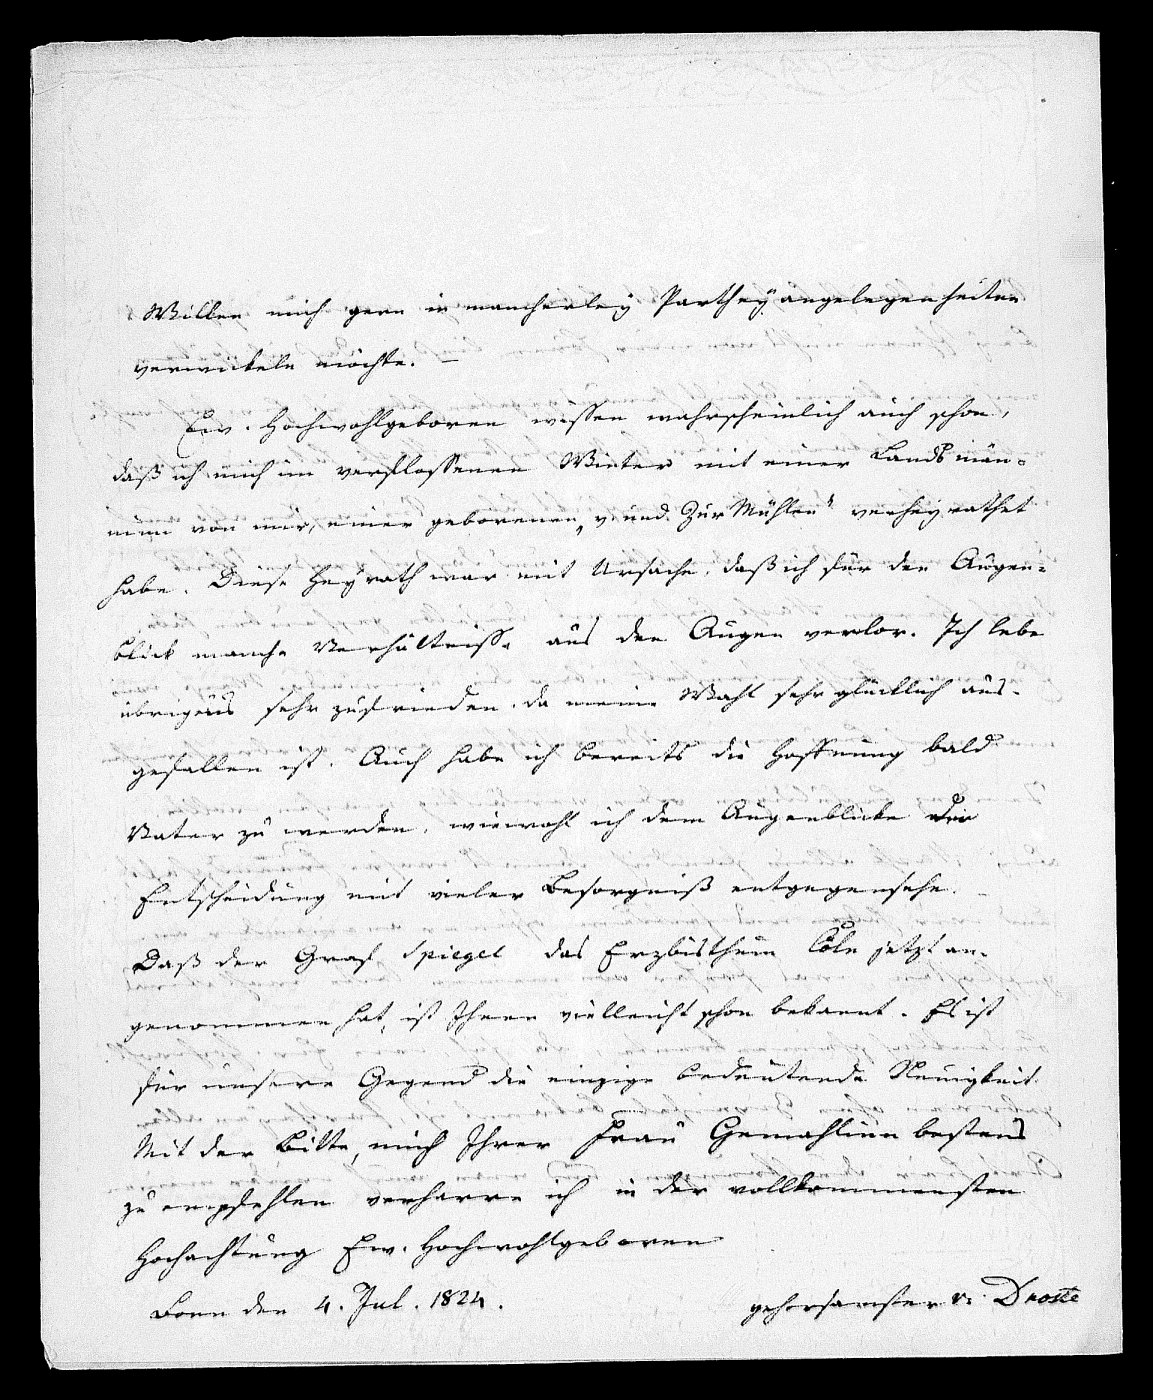 Willen mich gern in mancherley Partheyangelegenheiten
verwickeln möchte. –
Ew. Hochwohlgeboren wissen wahrscheinlich auch schon,
daß ich mich im verflossenen Winter mit einer Landsmän-
ninn von mir, einer geborenen „v. und Zur Mühlen“ verheyrathet
habe. Diese Heyrath war mit Ursache, daß ich für den Augen-
blick manche Verhältnisse aus den Augen verlor. Ich lebe
übrigens sehr zufrieden, da meine Wahl sehr glücklich aus-
gefallen ist. Auch habe ich bereits die Hoffnung bald
Vater zu werden, wiewohl ich dem Augenblicke der
Entscheidung mit vieler Besorgniß entgegensehe. –
Daß der Graf Spiegel das Erzbisthum Cöln jetzt an-
genommen hat, ist Ihnen vielleicht schon bekannt. Es ist
für unsere Gegend die einzige bedeutende Neuigkeit.
Mit der Bitte, mich Ihrer Frau Gemahlinn bestens
zu empfehlen verharre ich in der vollkommensten
Hochachtung Ew. Hochwohlgeboren
Bonn den 4. Jul. 1824.
gehorsamster v. Droste